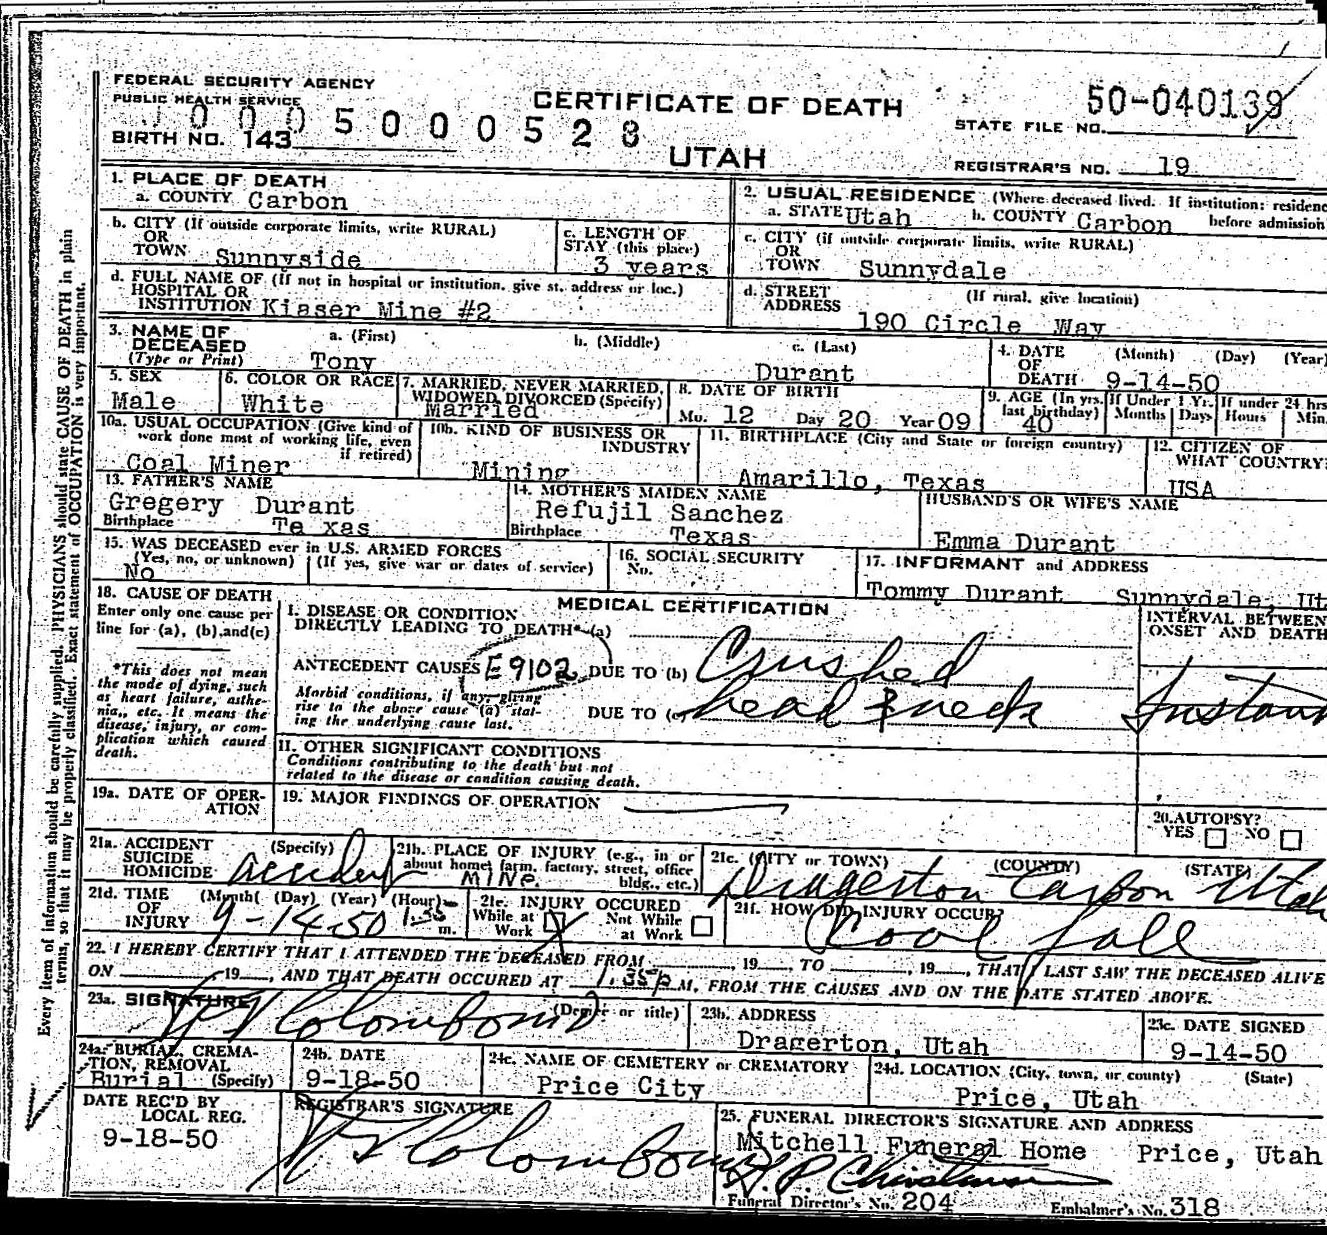 FEDERAL SECURITY AGENCY
PUBLIC HEALTH SERVICE
CERTIFICATE OF DEATH
UTAH
50-040139
STATE FILE NO.
0005000528
BIRTH NO. 143
REGISTRAR'S NO. 19
1. PLACE OF DEATH
a. COUNTY Carbon
2. USUAL RESIDENCE (Where deceased lived. If institution: residenc
a. STATE Utah b. COUNTY Carbon before admission
b. CITY (If outside corporate limits, write RURAL)
OR
TOWN Sunnyside
c. LENGTH OF
STAY (this place)
3 years
c. CITY (if outside corporate limits, write RURAL)
OR
TOWN Sunnydale
d. FULL NAME OF (If not in hospital or institution, give st. address or loc.)
HOSPITAL OR
INSTITUTION Kiaser Mine #2
d. STREET (If rural, give location)
ADDRESS
190 Circle Way
3. NAME OF
DECEASED
(Type or Print)
a. (First)
Tony
b. (Middle)
c. (Last)
Durant
4. DATE
OF
DEATH
(Month) (Day) (Year)
9-14-50
5. SEX
Male
6. COLOR OR RACE
White
7. MARRIED, NEVER MARRIED,
WIDOWED, DIVORCED (Specify)
Married
8. DATE OF BIRTH
Mo. 12 Day 20 Year 09
9. AGE (In yrs. last birthday)
40
If Under 1 Yr.
Months Days
If under 24 hrs
Hours Min.
10a. USUAL OCCUPATION (Give kind of
work done most of working life, even
if retired)
Coal Miner
10b. KIND OF BUSINESS OR
INDUSTRY
Mining
11. BIRTHPLACE (City and State or foreign country)
Amarillo, Texas
12. CITIZEN OF
WHAT COUNTRY?
USA
13. FATHER'S NAME
Gregery Durant
Birthplace Te xas
14. MOTHER'S MAIDEN NAME
Refujil Sanchez
Birthplace Texas
HUSBAND'S OR WIFE'S NAME
Emma Durant
15. WAS DECEASED ever in U.S. ARMED FORCES
(Yes, no, or unknown) (If yes, give war or dates of service)
No
16. SOCIAL SECURITY
No.
17. INFORMANT and ADDRESS
Tommy Durant Sunnydale, Ut
18. CAUSE OF DEATH
Enter only one cause per
line for (a), (b), and (c)
*This does not mean
the mode of dying, such
as heart failure, asthe-
nia, etc. It means the
disease, injury, or com-
plication which caused
death.
MEDICAL CERTIFICATION
I. DISEASE OR CONDITION
DIRECTLY LEADING TO DEATH* (a)
INTERVAL BETWEEN
ONSET AND DEATH
ANTECEDENT CAUSES E9102 DUE TO (b) Crushed
Morbid conditions, if any, giving
rise to the above cause (a) stat-
ing the underlying cause last.
DUE TO (c) head & neck Instant
II. OTHER SIGNIFICANT CONDITIONS
Conditions contributing to the death but not
related to the disease or condition causing death.
19a. DATE OF OPER-
ATION
19. MAJOR FINDINGS OF OPERATION
20. AUTOPSY?
YES NO
21a. ACCIDENT (Specify)
SUICIDE
HOMICIDE accident
21b. PLACE OF INJURY (e.g., in or
about home, farm, factory, street, office
bldg., etc.)
MINE
21c. (CITY or TOWN) (COUNTY) (STATE)
Dragerton Carbon Utah
21d. TIME (Month) (Day) (Year) (Hour)
OF
INJURY 9-14-50 1:35 m.
21e. INJURY OCCURED
While at Work Not While at Work
21f. HOW DID INJURY OCCUR?
Coal fall
22. I HEREBY CERTIFY THAT I ATTENDED THE DECEASED FROM , 19 , TO , 19 , THAT I LAST SAW THE DECEASED ALIVE
ON , 19 , AND THAT DEATH OCCURED AT 1:35 p M, FROM THE CAUSES AND ON THE DATE STATED ABOVE.
23a. SIGNATURE (Degree or title)
Colombo
23b. ADDRESS
Dragerton, Utah
23c. DATE SIGNED
9-14-50
24a. BURIAL, CREMA-
TION, REMOVAL
Burial (Specify)
24b. DATE
9-18-50
24c. NAME OF CEMETERY or CREMATORY
Price City
24d. LOCATION (City, town, or county) (State)
Price, Utah
DATE REC'D BY
LOCAL REG.
9-18-50
REGISTRAR'S SIGNATURE
Colombo
25. FUNERAL DIRECTOR'S SIGNATURE AND ADDRESS
Mitchell Funeral Home Price, Utah
Funeral Director's No. 204 Embalmer's No. 318
Every item of information should be carefully supplied. PHYSICIANS should state CAUSE OF DEATH in plain
terms, so that it may be properly classified. Exact statement of OCCUPATION is very important.